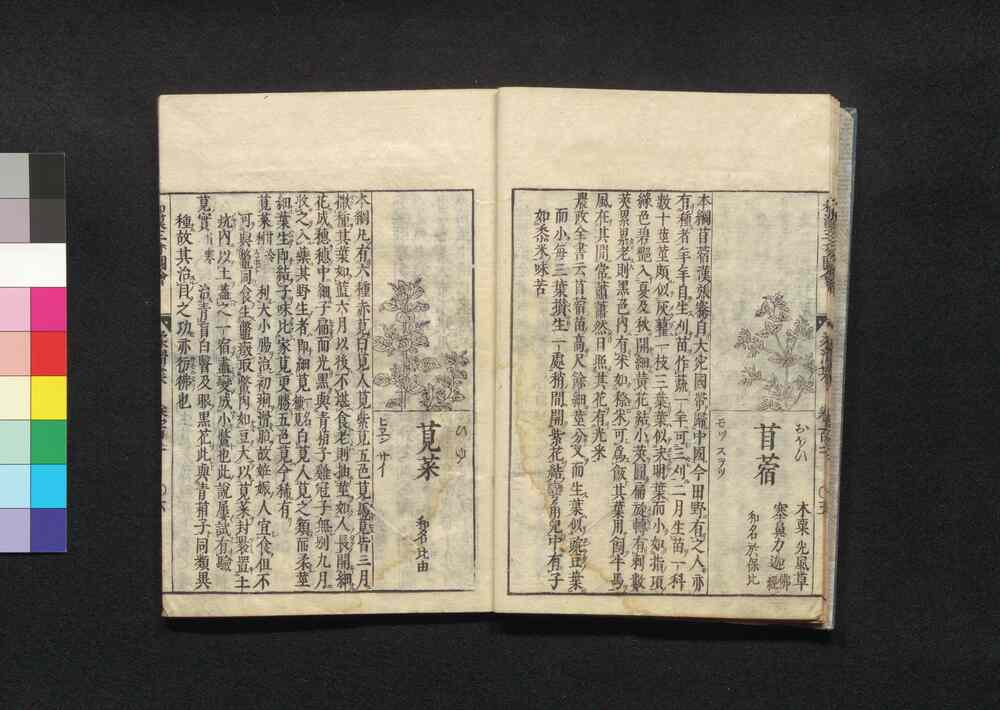 おほひ
苜蓿
モツ スヲツ
木粟 光風草
塞鼻力迦 佛經
和名於保比
本綱苜蓿漢張騫自大宛國帶歸中國今田野有之人亦
有種者年年自生刈苗作蔬一年可三刈二月生苗一科
數十莖莖頗似灰藋一枝三葉葉似决明葉而小如指頂
綠色碧艷入夏及秋開細黃花結小莢圓扁旋轉有刺數
莢累累老則黑色内有米如穄米可為飯其葉用飼牛馬
風在其間常蕭蕭然日照其花有光釆
農政全書云苜蓿苗高尺餘細莖分叉而生葉似豌豆葉
而小每三葉攅生一處梢間開紫花結彎角兒中有子
如黍米味苦
ひゆ
莧菜
ヒエン サイ
和名比由
本綱凡有六種赤莧白莧人莧紫莧五色莧馬莧皆三月
撒種其葉如藍六月以後不堪食老則抽莖如人長開細
花成穗穗中細子扁而光黑與青葙子雞冠子無別九月
收之入藥其野生者即細莧
細葉生即結子味比家莧更勝五色莧今稀有
莧菜 甘冷 利大小腸治初痢滑胎故姙娠人宜食但不
可與鼈同食生鼈癥取鼈肉如豆大以莧菜封裹置土
坑内以土蓋之一宿盡變成小鼈也此說屢試有驗
莧實 甘寒 治青盲白瞖及眼黒花此與青葙子同類異
種故其治目之功亦彷彿也